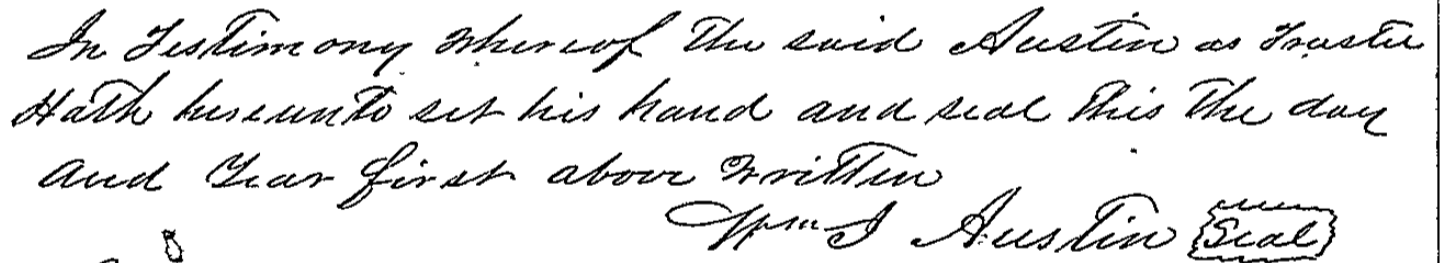 In Testimony Whereof the said Austin as Trustee
Hath hereunto set his hand and seal this the day
and Year first above Written
Wm J Austin Seal